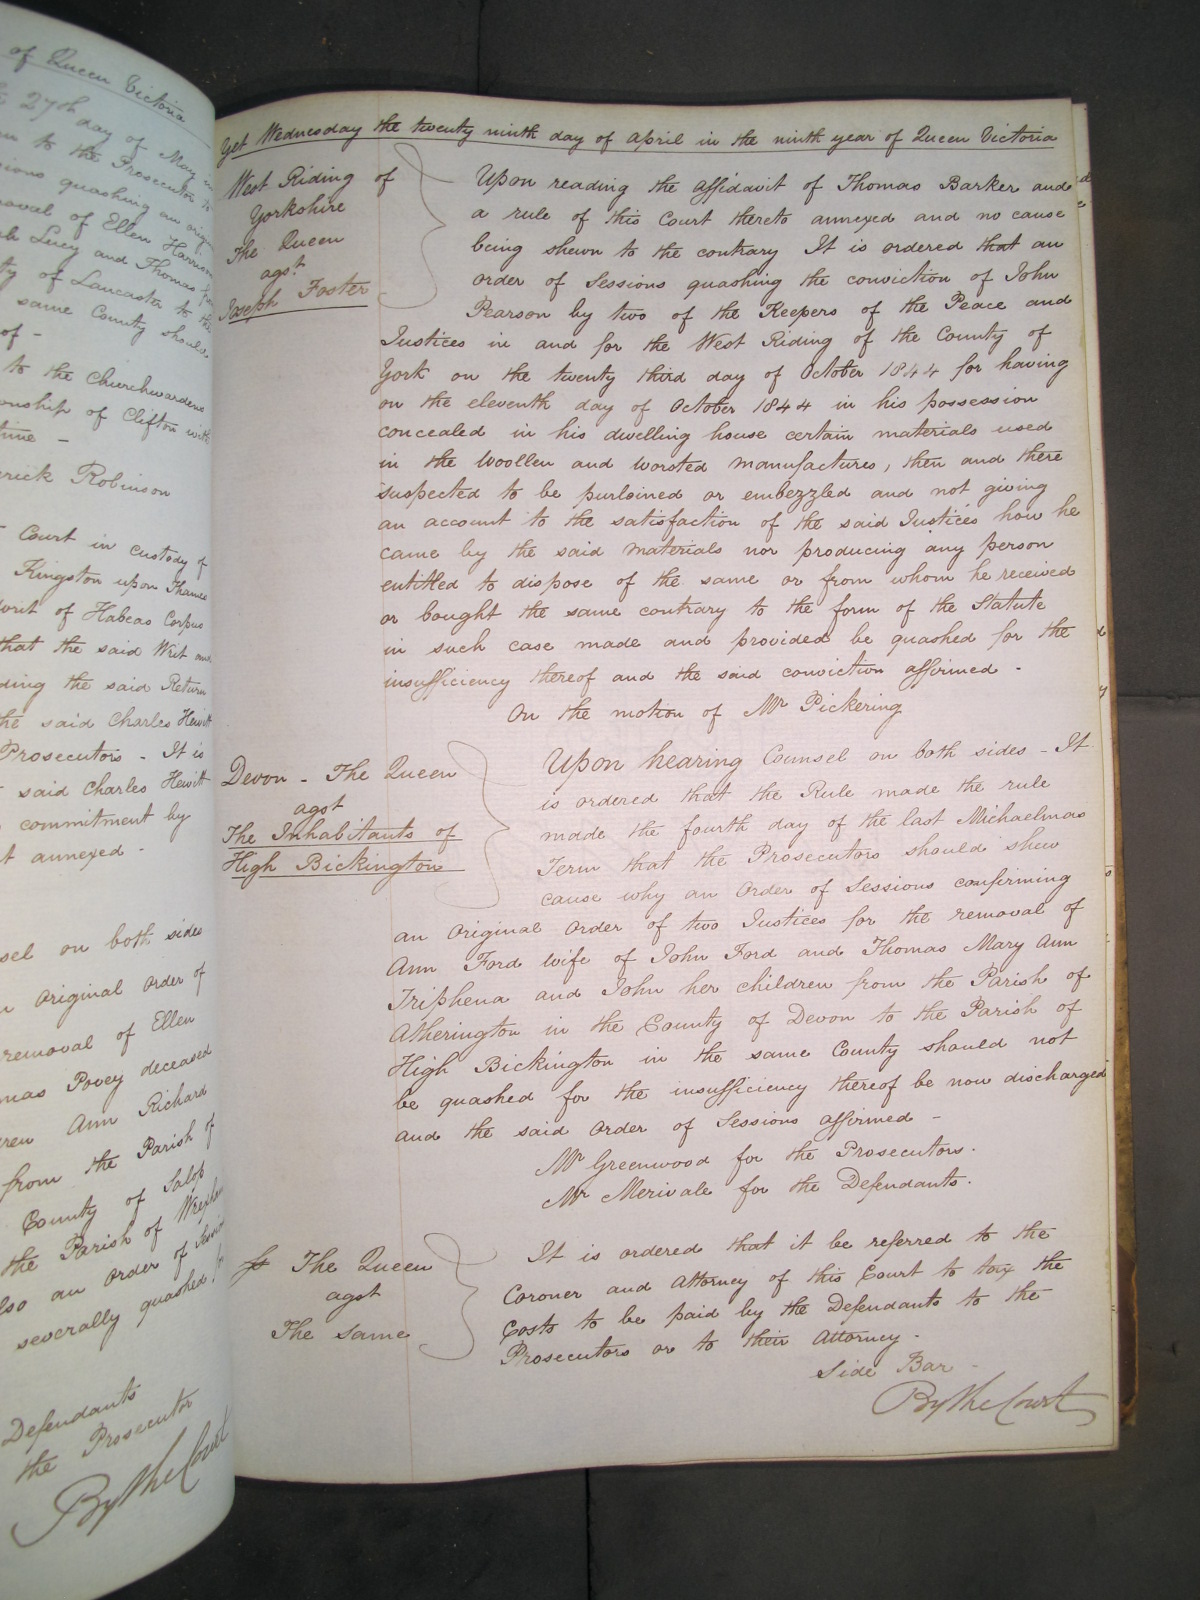 of Queen Victoria
27th day of May
to the Prosecutor to
quashing an
of Ellen Harrison
Lucy and Thomas
of Lancaster to the
same County should
of -
to the Churchwardens
of Clifton with
time -
Robinson
Court in custody of
Kingston upon Thames
writ of Habeas Corpus
that the said Writ and
the said Return
the said Charles Hewitt
Prosecutors - It is
said Charles Hewitt
commitment by
annexed -
on both sides
Original Order of
removal of Ellen
Povey deceased
Ann Richard
from the Parish of
County of Salop
the Parish of
also an Order of Sessions
severally quashed
Defendants
the Prosecutor
By the Court
Yet Wednesday the twenty ninth day of April in the ninth year of Queen Victoria
West Riding of
Yorkshire
The Queen
agst
Joseph Foster
Upon reading the affidavit of Thomas Barker and
a rule of this Court thereto annexed and no cause
being shewn to the contrary It is ordered that an
order of Sessions quashing the conviction of John
Pearson by two of the Keepers of the Peace and
Justices in and for the West Riding of the County of
York on the twenty third day of October 1844 for having
on the eleventh day of October 1844 in his possession
concealed in his dwelling house certain materials used
in the Woollen and Worsted manufactures, then and there
suspected to be purloined or embezzled and not giving
an account to the satisfaction of the said Justices how he
came by the said materials nor producing any person
entitled to dispose of the same or from whom he received
or bought the same contrary to the form of the Statute
in such case made and provided be quashed for the
insufficiency thereof and the said conviction affirmed -
On the motion of Mr Pickering
Devon - The Queen
agst
The Inhabitants of
High Bickington
Upon hearing Counsel on both sides - It
is ordered that the Rule made the rule
made the fourth day of the last Michaelmas
Term that the Prosecutors should shew
cause why an Order of Sessions confirming
an Original Order of two Justices for the removal of
Ann Ford wife of John Ford and Thomas Mary Ann
Triphena and John her children from the Parish of
Atherington in the County of Devon to the Parish of
High Bickington in the same County should not
be quashed for the insufficiency thereof be now discharged
and the said Order of Sessions affirmed -
Mr Greenwood for the Prosecutors.
Mr Merivale for the Defendants.
The Queen
agst
The Same
It is ordered that it be referred to the
Coroner and Attorney of this Court to tax the
Costs to be paid by the Defendants to the
Prosecutors or to their Attorney.
Side Bar -
By the Court